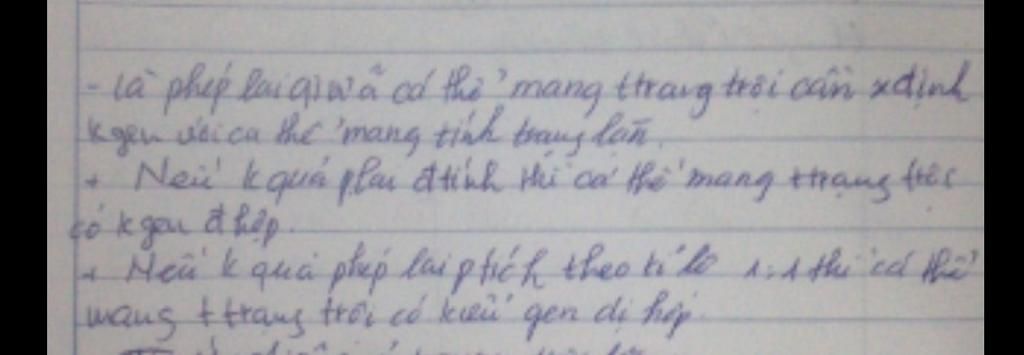 - là phép lai giữa cá thể mang ttrạng trội cần xđịnh
kgen với cá thể mang tính trạng lặn.
+ Nếu k quả plai đtính thì cá thể mang ttrạng trội
có kgen đhợp.
+ Nếu k quả phép lai ptích theo tỉ lệ 1:1 thì cá thể
mang ttrạng trội có kiểu gen dị hợp.